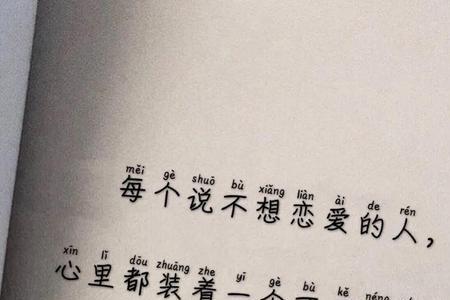 měi gè shuō bù xiǎng liàn ài de rén
每个说不想恋爱的人，
xīn lǐ dōu zhuāng zhe yī gè bù kě néng
心里都装着一个